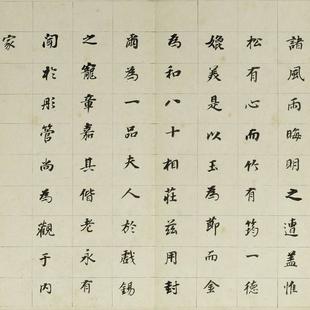 諸風雨晦明之遭蓋惟
松有心而竹有筠一德
媲美是以玉為節而金
為和八十相莊茲用封
爾為一品夫人於戲錫
之寵章嘉其偕老永有
聞於彤管尚為觀于內
家